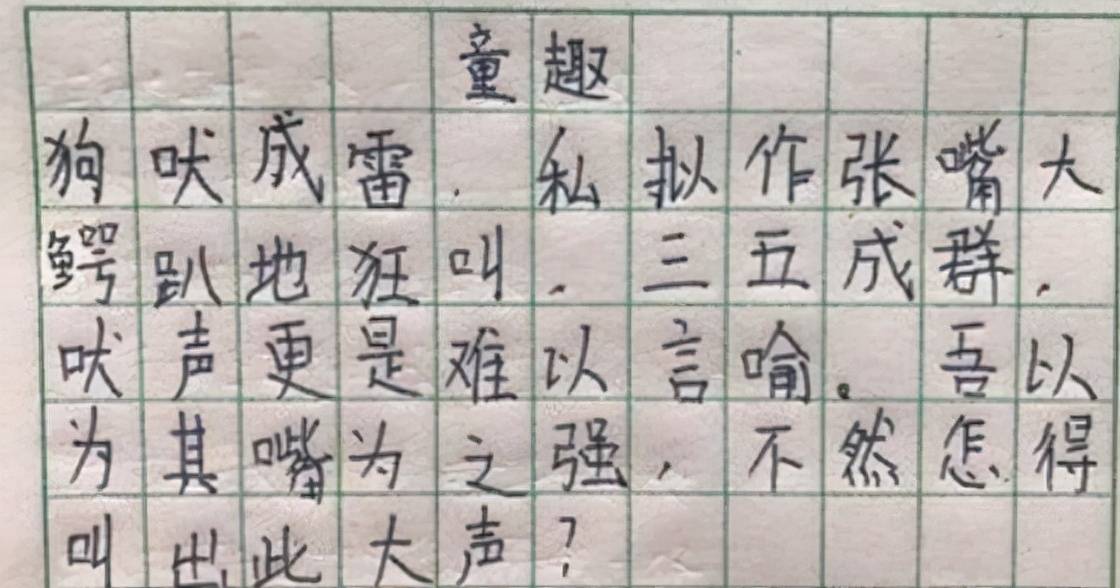 童趣
狗吠成雷，私拟作张嘴大
鳄趴地狂叫，三五成群，
吠声更是难以言喻。吾以
为其嘴为之强，不然怎得
叫出此大声？